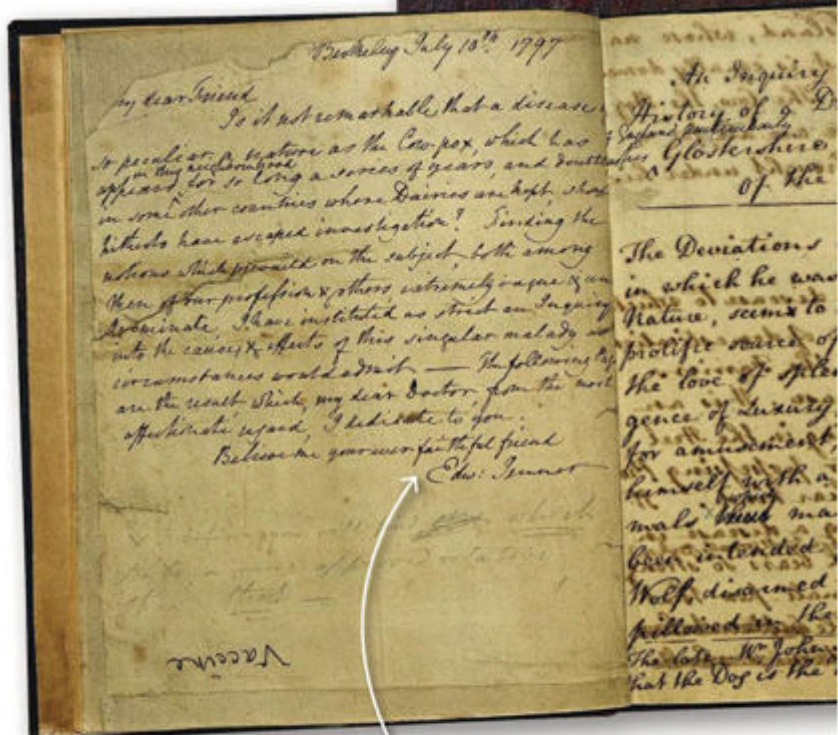 Berkeley July 10th 1797
My dear Friend
Is it not remarkable that a disease
so peculiar a nature as the Cow-pox, which has
in this neighbourhood
appeared for so long a series of years, and doubtless
in some other countries where Dairies are kept, should
hitherto have escaped investigation? Finding the
notions which prevail'd on the subject, both among
Men of our profession & others extremely vague &
I have instituted as strict an Inquiry
into the causes & effects of this singular malady as
circumstances would admit — The following
are the result which, my dear Doctor, from the most
affectionate regard, I dedicate to you.
Believe me your ever faithful friend
Edw: Jenner
which
Vaccine
An Inquiry
History of a D
England, particularly
Glostershire
Of the
The Deviations
in which he was
Nature, seems to
prolific source of
the love of splen
gence of Luxury
for amusement
himself with a
mals ma
been intended
Wolf disarmed
pillowed in the
The late Mr John
that the Dog is the